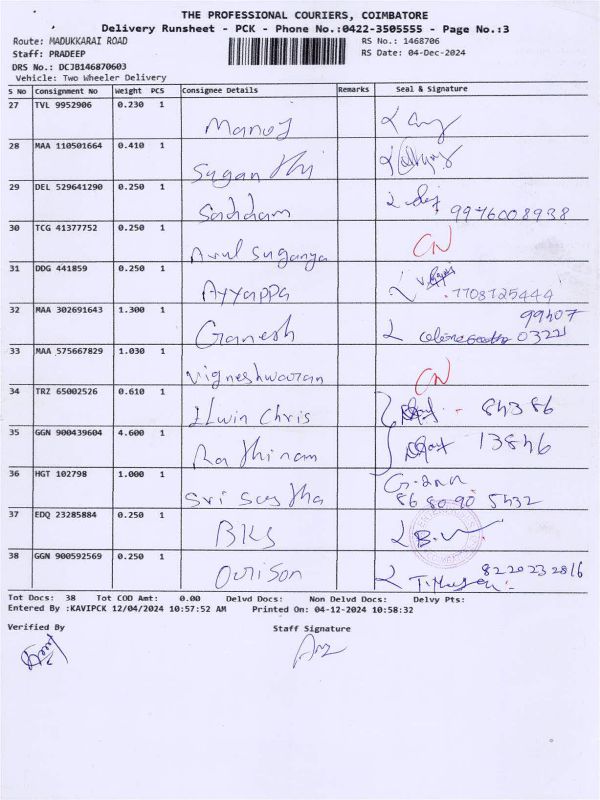 THE PROFESSIONAL COURIERS, COIMBATORE
Delivery Runsheet - PCK - Phone No.:0422-3505555 - Page No.:3
Route: MADUKKARAI ROAD
RS No.: 1468706
Staff: PRADEEP
RS Date: 04-Dec-2024
DRS No.: DCJB146870603
Vehicle: Two Wheeler Delivery
S No Consignment No Weight PCS Consignee Details Remarks Seal & Signature
27 TVL 9952906 0.230 1
Manoj
28 MAA 110501664 0.410 1
Suganthi
29 DEL 529641290 0.250 1
Saddam 9976008938
30 TCG 41377752 0.250 1
Arul Suganya CN
31 DDG 441859 0.250 1
Ayyappa 7708725444
32 MAA 302691643 1.300 1
Ganesh 99407
03221
33 MAA 575667829 1.030 1
Vigneshwaran CN
34 TRZ 65002526 0.610 1
Ilwin Chris 84386
35 GGN 900439604 4.600 1
Rathinam 13846
36 HGT 102798 1.000 1
Sri Sastha 86 80 90 5432
37 EDQ 23285884 0.250 1
BKS
38 GGN 900592569 0.250 1
Orison 8220232816
Tot Docs: 38 Tot COD Amt: 0.00 Delvd Docs: Non Delvd Docs: Delvy Pts:
Entered By :KAVIPCK 12/04/2024 10:57:52 AM Printed On: 04-12-2024 10:58:32
Verified By Staff Signature